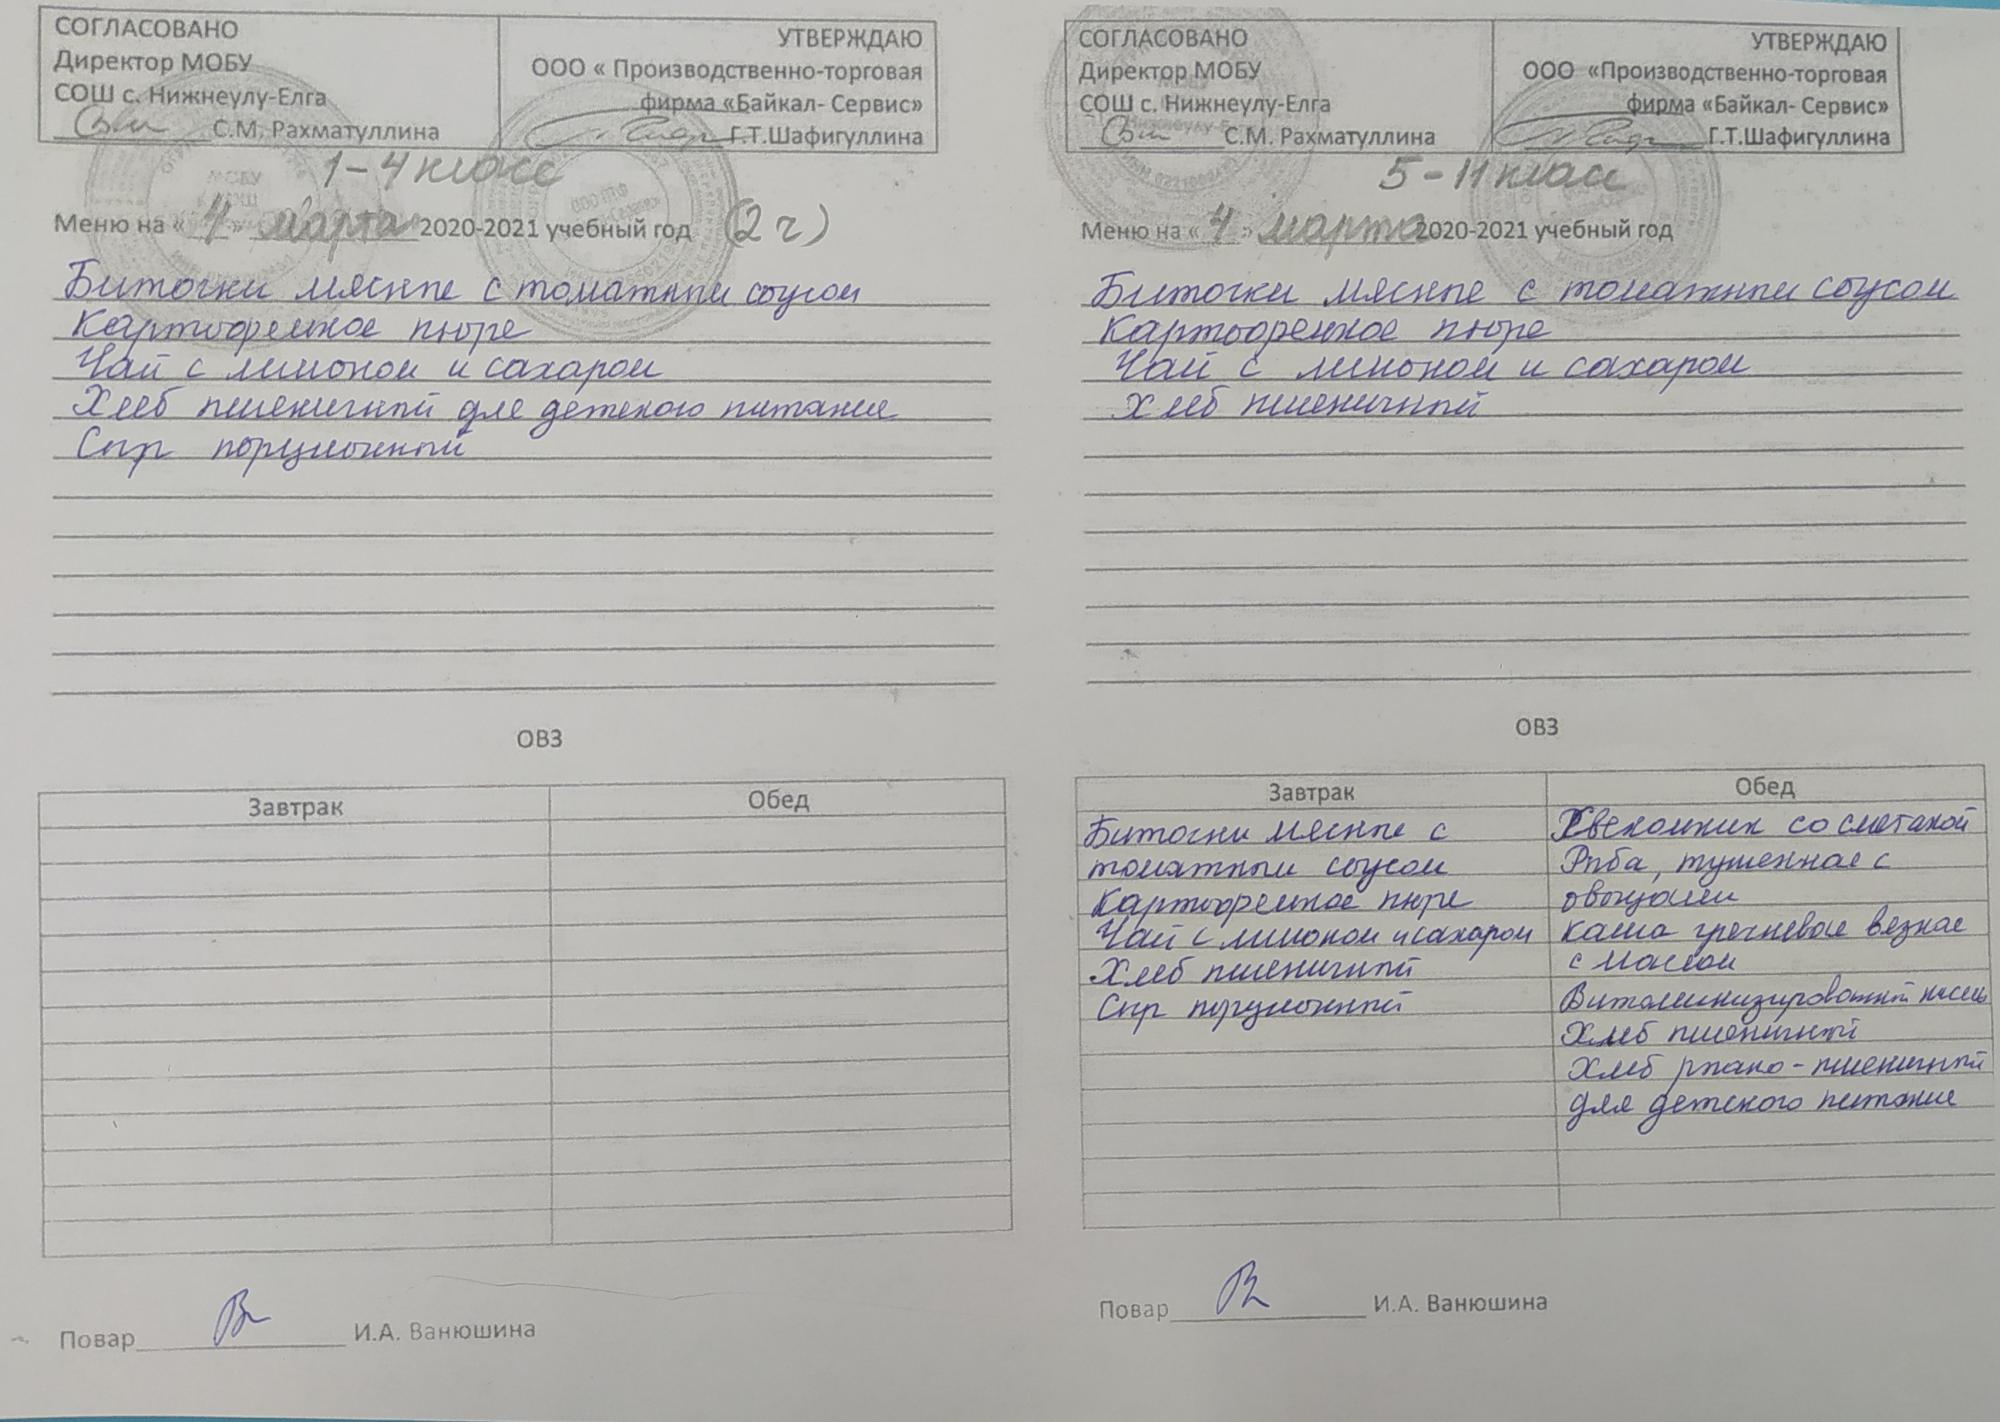 СОГЛАСОВАНО
Директор МОБУ
СОШ с. Нижнеулу-Елга
С.М. Рахматуллина
УТВЕРЖДАЮ
ООО « Производственно-торговая
фирма «Байкал- Сервис»
Г.Т.Шафигуллина
1-4 класс
Меню на « 4 » марта 2020-2021 учебный год (2 ч)
Биточки мясные с томатным соусом
Картофельное пюре
Чай с лимоном и сахаром
Хлеб пшеничный для детского питания
Сыр порционный
ОВЗ
Завтрак Обед
Повар И.А. Ванюшина
СОГЛАСОВАНО
Директор МОБУ
СОШ с. Нижнеулу-Елга
С.М. Рахматуллина
УТВЕРЖДАЮ
ООО «Производственно-торговая
фирма «Байкал- Сервис»
Г.Т.Шафигуллина
5-11 класс
Меню на « 4 » марта 2020-2021 учебный год
Биточки мясные с томатным соусом
Картофельное пюре
Чай с лимоном и сахаром
Хлеб пшеничный
ОВЗ
Завтрак
Биточки мясные с
томатным соусом
Картофельное пюре
Чай с лимоном и сахаром
Хлеб пшеничный
Сыр порционный
Обед
Свекольник со сметаной
Рыба, тушенная с
овощами
Каша гречневая вязкая
с маслом
Витаминизированный кисель
Хлеб пшеничный
Хлеб ржано-пшеничный
для детского питания
Повар И.А. Ванюшина